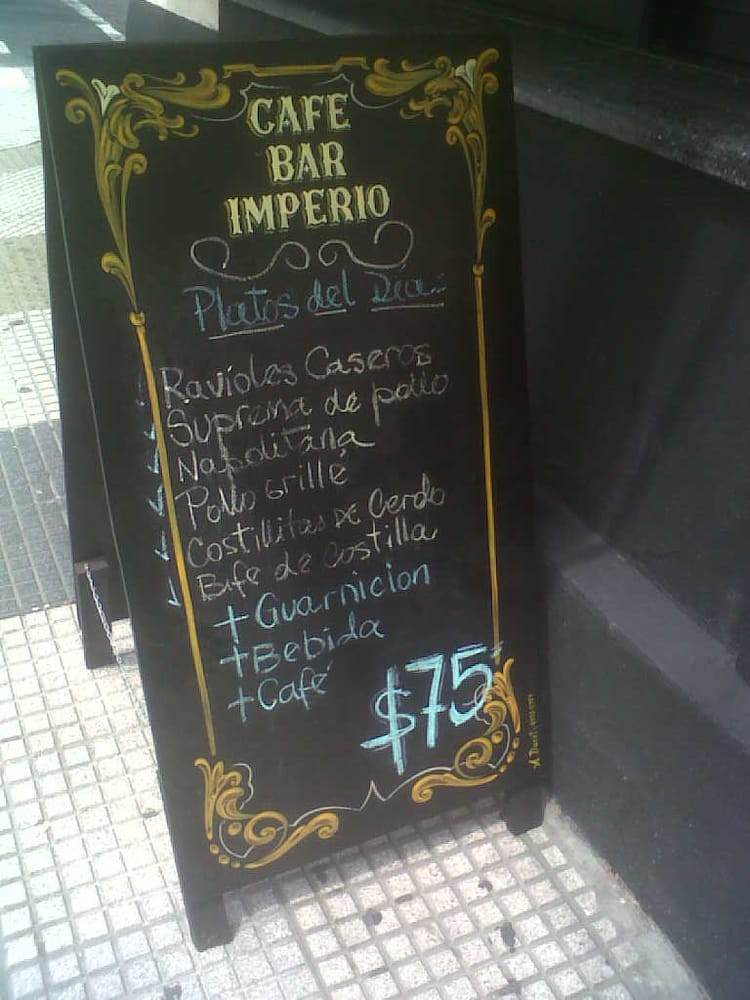 CAFE
BAR
IMPERIO
Platos del Día
Ravioles Caseros
Suprema de pollo
Napolitana
Pollo Grillé
Costillitas de Cerdo
Bife de Costilla
+ Guarnicion
+ Bebida
+ Café
$75